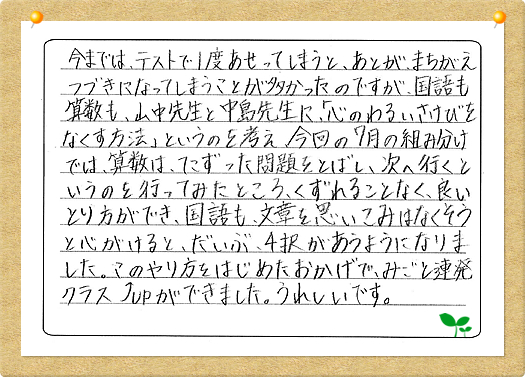 今までは、テストで1度あせってしまうと、あとが、まちがえ
つづきになってしまうことが多かったのですが、国語も
算数も、山中先生と中島先生に、「心のわるいさけびを
なくす方法」というのを考え、今回の7月の組み分け
では、算数は、てこずった問題をとばし、次へ行くと
いうのを行ってみたところ、くずれることなく、良い
とり方ができ、国語も、文章を思いこみはなくそう
と心がけると、だいぶ、4択があうようになりま
した。このやり方をはじめたおかげで、みごと連発
クラスUPができました。うれしいです。